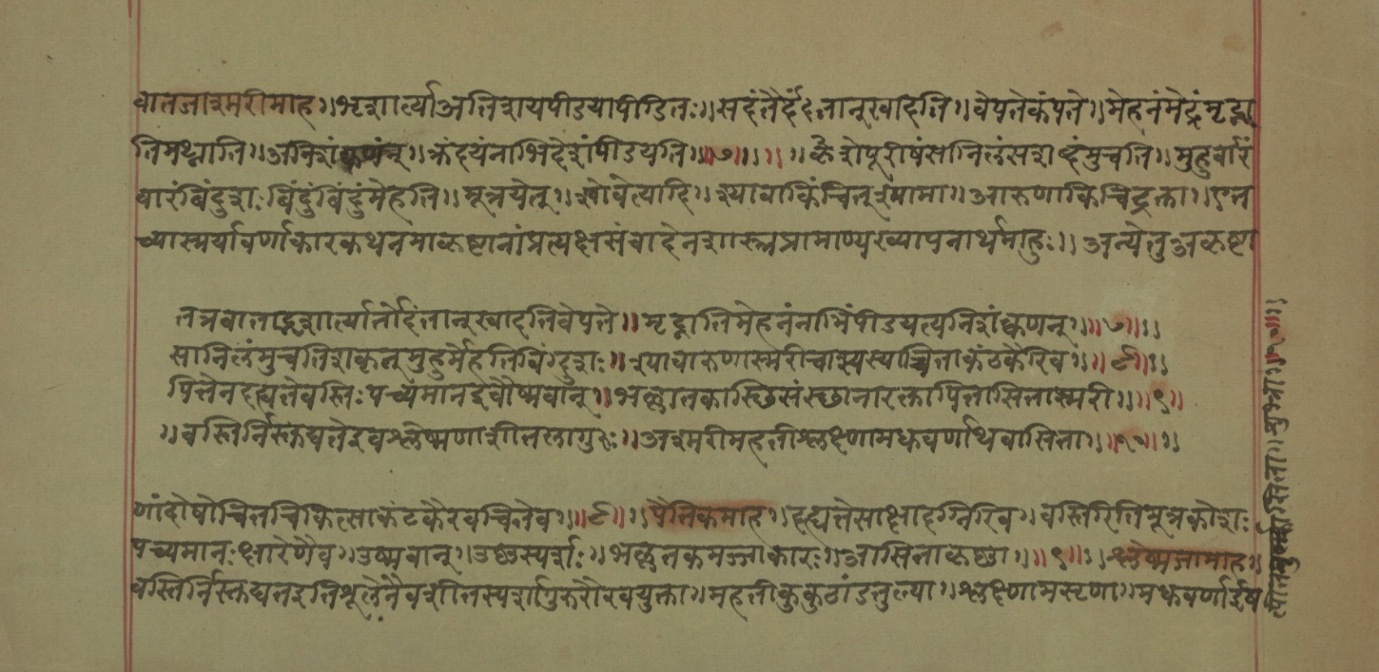 वातजाश्मरीमाह॥भृशार्त्याअतिशयपीडयापीडितः॥सदंतैर्दंतान्खादति॥वेपतेकंपते॥मेहनंमेढ्रंमृद्ना
तिमथ्नाति॥अनिशंक्वणन्॥क्रंदयंनाभिदेशंपीडयति॥७॥॥क्लैशेपूरीषंसनिलंसशब्दंमुंचति॥मुहुर्वारं
वारंबिंदुशःबिंदुंबिंदुंमेहति॥मूत्रयेत्॥श्यावाकिंचित्श्यामा॥आरुणाकिंचिद्रक्ता॥एत
च्चाश्मर्यावर्णाकारकथनमाकृष्टानांप्रत्यक्षसंवादेनशास्त्रप्रामाण्यख्यापनार्थमाहुः॥अन्येतुअकृष्टा
तत्रवाताद्भृशार्त्यार्तोदंतान्खादतिवेपते॥मृद्नातिमेहनंनाभिंपीडयत्यनिशंक्वणन्॥७॥
सानिलंमुंचतिशकृन्मुहुर्मेहतिबिंदुशः॥श्यावारुणाश्मरीचास्यस्याच्चिताकंठकैरिव॥८॥
पित्तेनदह्यतेवस्तिःपच्यमानइवोष्मवान्॥भल्लातकास्थिसंस्थानारक्तापित्तासिताश्मरी॥९॥
॥वस्तिर्निस्तुद्यतेइवश्लेष्मणाशीतलोगुरुः॥अश्मरीमहतीश्लक्ष्णामधुवर्णाथवासिता॥१०॥
णांदोषोचितचिकित्साकंटकैरवचितेव॥८॥पैत्तिकमाह॥दह्यतेसाक्षादग्निरिव॥वस्तिरितिमूत्रकोशः
पच्यमानःक्षारेणैव॥उष्मवान्॥उष्णस्पर्शः॥भल्लातकमज्जाकारः॥आसिताकृष्णा॥९॥श्लेष्मजामाह॥
वस्तिर्निस्तुद्यतइतिशूलेनैवशीतस्पर्शागुरुगौरवयुक्ता॥महतीकुकुटांडतुल्या॥श्लक्ष्णामसृणा॥मधुवर्णाईष